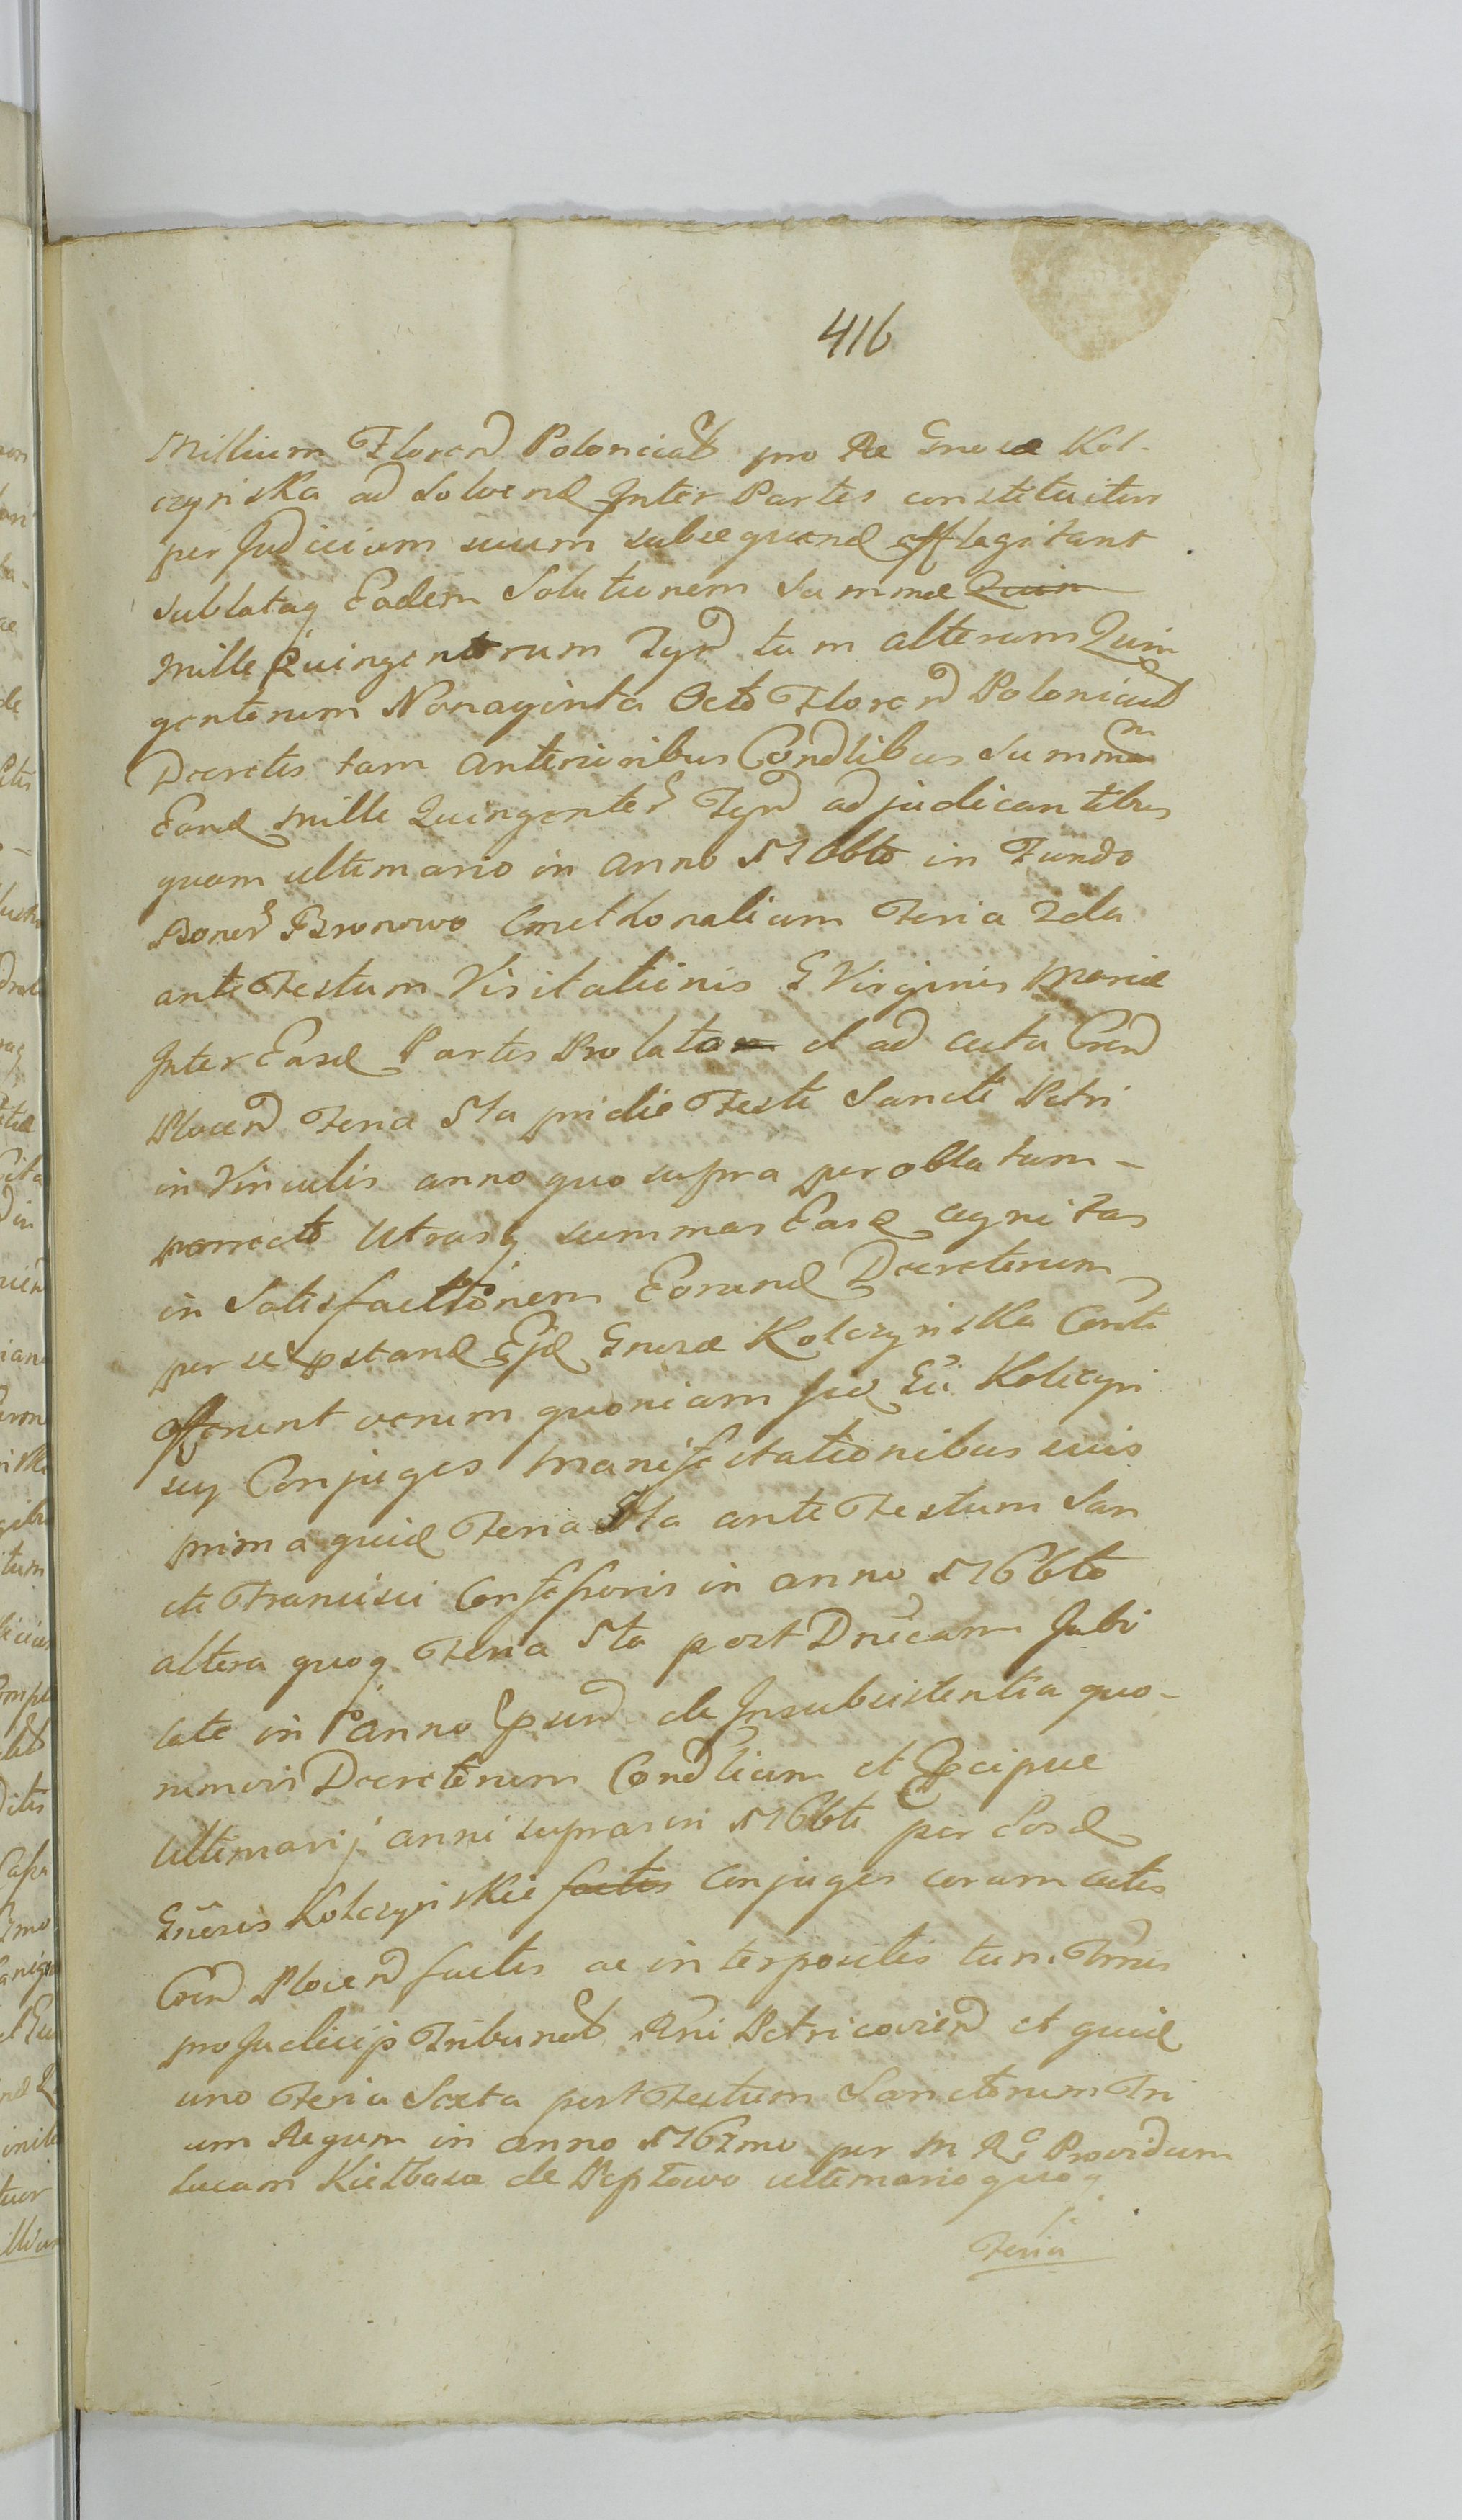 416
Millium Floren Polonical pro Re Gnosae Kol-
czynska ad Solvend Inter Partes constituitur
per Judicium suum subsequend efflagitant
sublataq Eadem Solutionem Summae Quin
Mille Quingentorum Tyn tum alteram Quin
gentorum Nonaginta Octo Floren Polonical
Decretis tam anterioribus Condlibus Summam
Eand Mille Quingenter Tyn adjudicantibus
quam ultimario in anno 1766to in Fundo
Boner Bronowo Cmethonalium Feria 2da
ante Festum Visitationis S Virginis Mariae
Inter Easd Partes Prolato et ad acta Cren
Plocen Feria 5ta pridie Festi Sancti Petri
in Vinculis anno quo supra per oblatam
porrecto Utrasq summas Easd agnitas
in Satisfactionem Eorund Decretorum
per se pstand Ejd Gnosae Kolczynska Conti
offerunt verum quoniam Gsi Kolczyn
scy Conjuges Manifestationibus suis
prima quid Feria 5ta ante Festum San
cti Francisci Confessoris in anno 1766to
altera quoq Feria 5ta post Dnicam Jubi
late in anno psen de Insubsistentia quo-
rumvis Decretorum Condlium et Pcipue
Ultimarij anni suprascri 1766ti per Eosd
Gnosos Kolczynskie factis Conjuges coram actis
Cren Plocen factis ac interpositis tum Tmis
pro Judicijs Tribunal Rni Petricovien et quid
uno Feria Sexta post Festum Sanctorum Tri
um Regum in anno 1767mo per M Re Providum
Lucam Kielbasa de Peptowo ultimario quoq
Feria